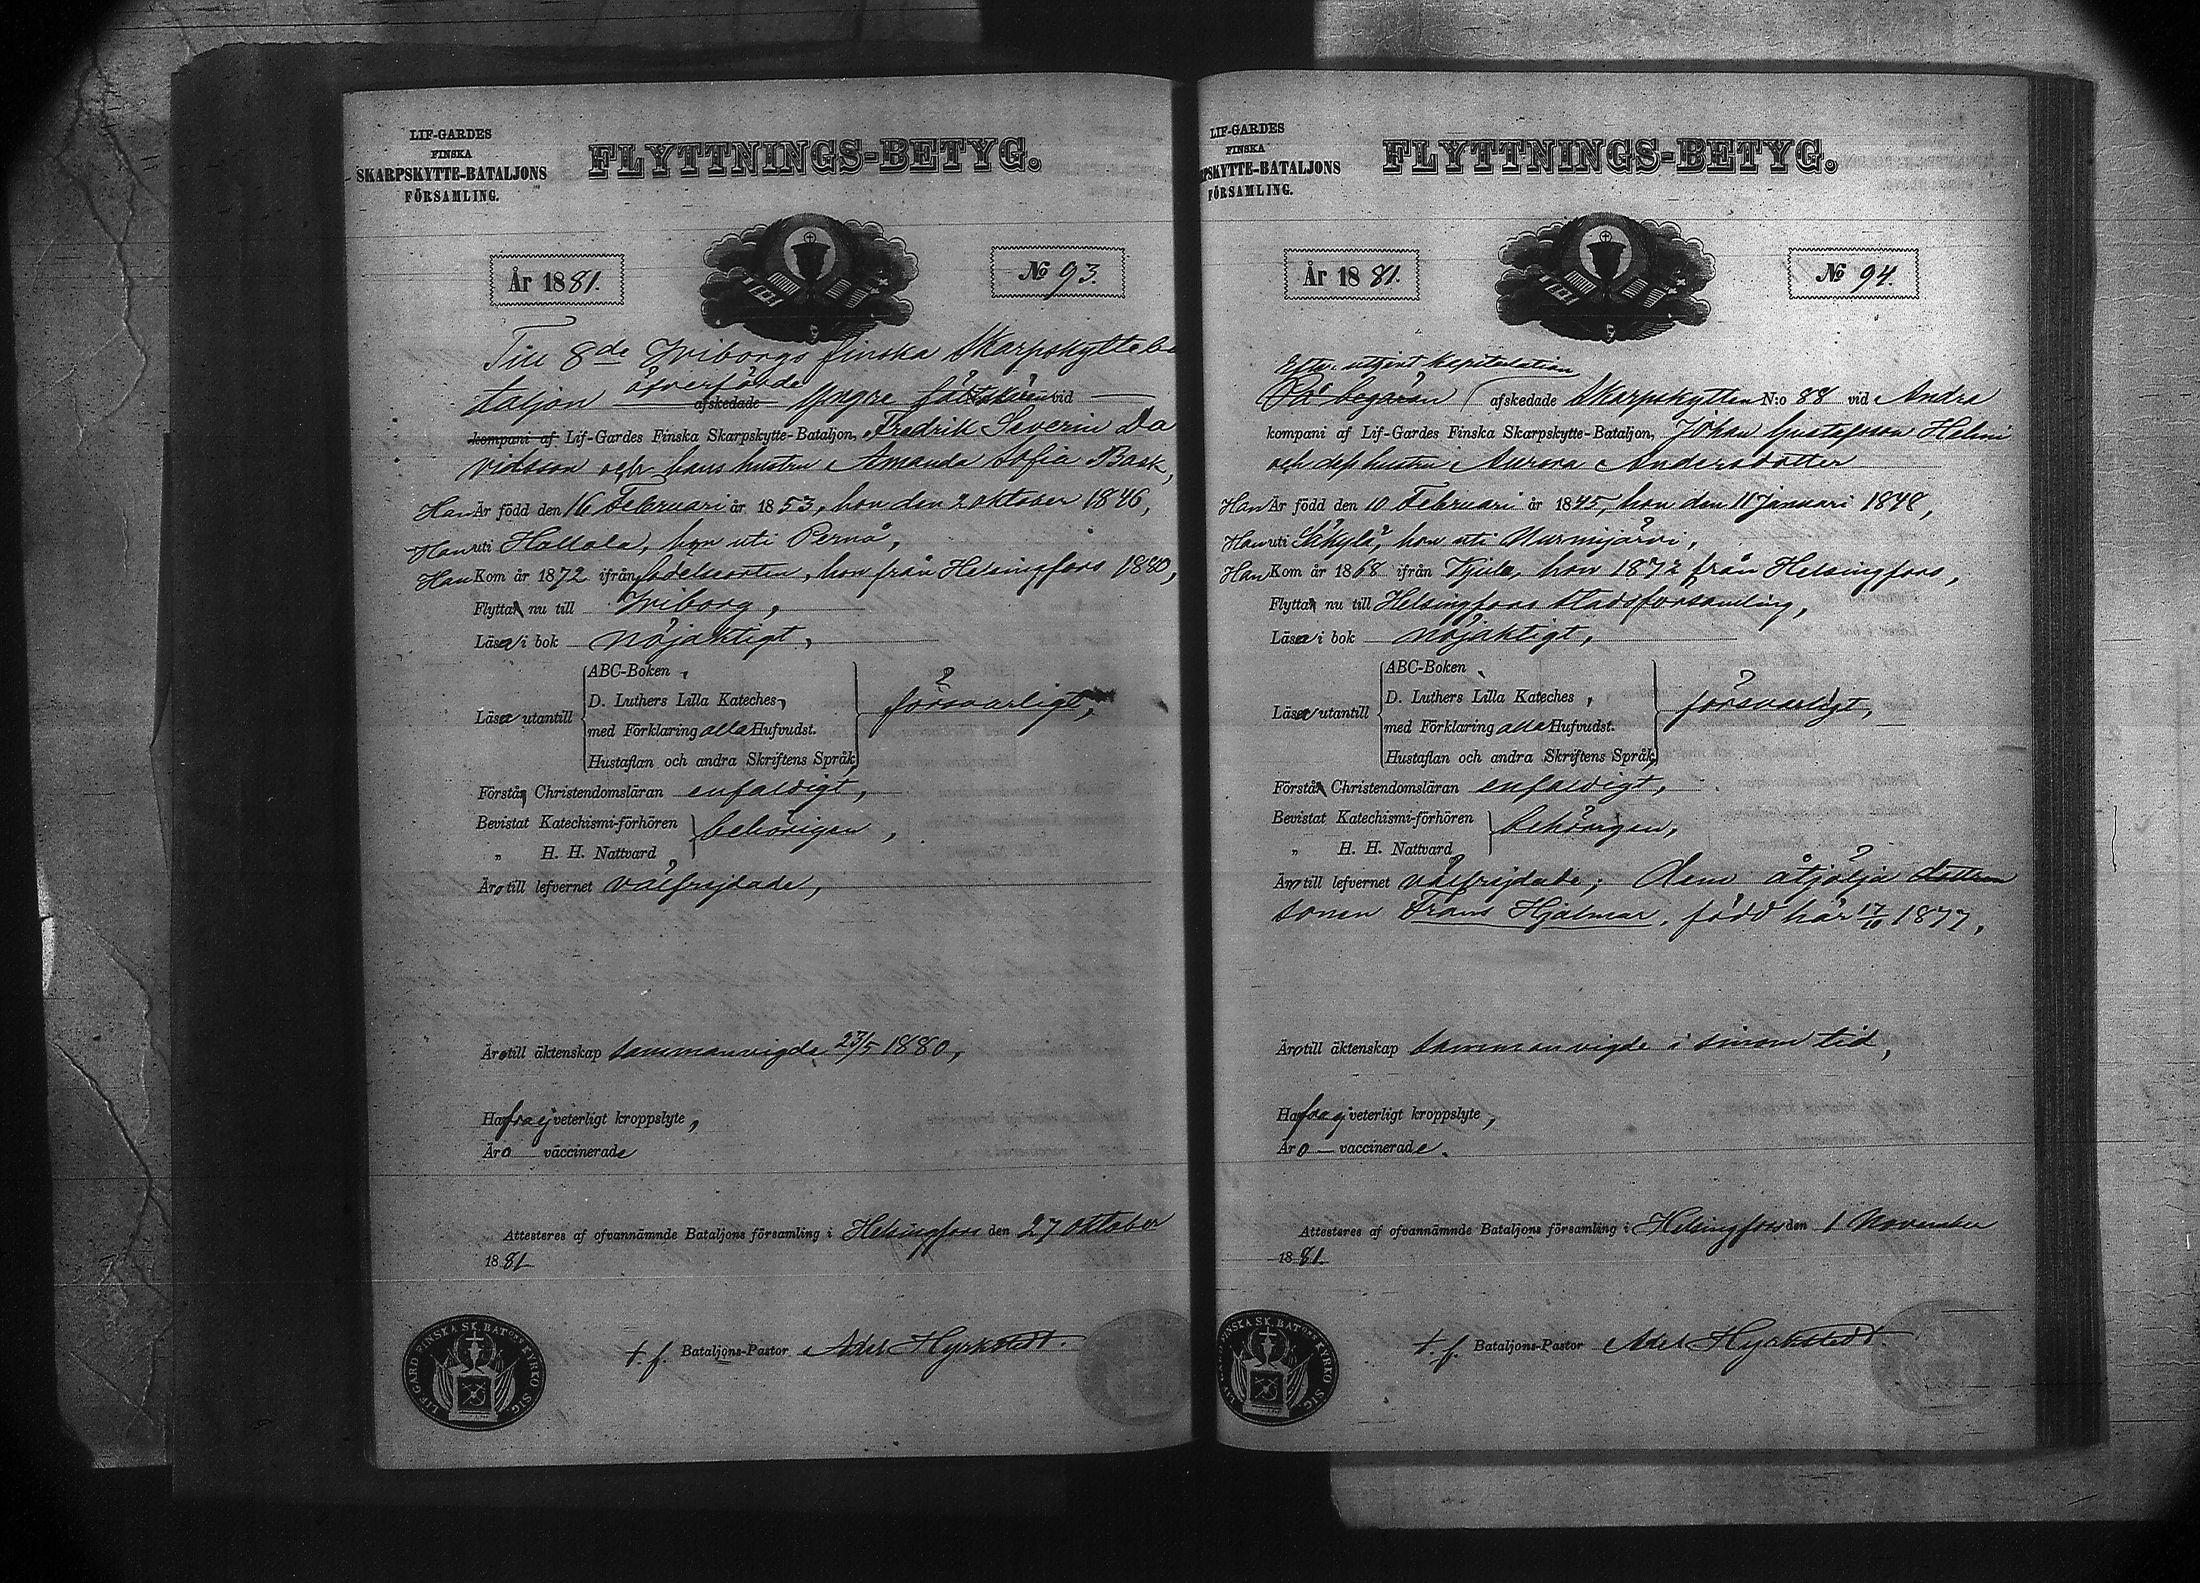 LIF-GARDES
FINSKA
SKARPSKYTTE-BATALJONS
FÖRSAMLING.
FLYTTNINGS-BETYG.
År 1881.
No 93.
Till 8de Wiborgs finska Skarpskytteba
taljon öfverförde afskedade Yngre fältskären vid
kompani af Lif-Gardes Finska Skarpskytte-Bataljon, Fredrik Severin Da
vidsson och hans hustru Amanda Sofia Bask,
Han Är född den 16 Februari år 1853, hon den 2 oktober 1846,
Han uti Hollola, hon uti Perno,
Han Kom år 1872 ifrån födelseorten, hon från Helsingfors 1880,
Flytta nu till Wiborg,
Läsa i bok nöjaktigt,
ABC-Boken,
D. Luthers Lilla Kateches,
Läsa utantill
försvarligt,
med Förklaring alla Hufvudst.
Hustaflan och andra Skriftens Språk,
Förstå Christendomsläran enfaldigt,
Bevistat Katechismi-förhören
behörigen,
„ H. H. Nattvard
Äro till lefvernet välfrejdade,
Äro till äktenskap sammanvigde 23/5 1880,
Hafva ej veterligt kroppslyte,
Äro vaccinerade
Attesteres af ofvannämnde Bataljons församling i Helsingfors den 27 oktober
1881
LIF GARD FINSKA SK. BATONS KYRKO SIG.
t. f. Bataljons-Pastor Axel Hyrkstedt.
LIF-GARDES
FINSKA
RPSKYTTE-BATALJONS
FÖRSAMLING.
FLYTTNINGS-BETYG.
År 1881.
No 94.
Efter utgönt kapitulation
På begäran afskedade Skarpskytten N:o 88 vid Andra
kompani af Lif-Gardes Finska Skarpskytte-Bataljon, Johan Gustafsson Helmi
och dess hustru Aurora Andersdotter
Han Är född den 10 Februari år 1845, hon den 11 januari 1848,
Han uti Säkylä, hon uti Nurmijärvi,
Han Kom år 1868 ifrån Kjulo, hon 1872 från Helsingfors,
Flytta nu till Helsingfors stadsförsamling,
Läsa i bok nöjaktigt,
ABC-Boken
D. Luthers Lilla Kateches,
Läsa utantill
försvarligt,
med Förklaring alla Hufvudst.
Hustaflan och andra Skriftens Språk,
Förstå Christendomsläran enfaldigt,
Bevistat Katechismi-förhören
behörigen,
„ H. H. Nattvard
Äro till lefvernet välfrejdade; Dem åtfölja dottren
sonen Frans Hjalmar, född här 17/10 1877,
Äro till äktenskap sammanvigde i sinom tid,
Hafva ej veterligt kroppslyte,
Äro vaccinerade.
Attesteres af ofvannämnde Bataljons församling i Helsingfors den 1 November
1881.
FINSKA SK. BATONS KYRKO SIG.
t. f. Bataljons-Pastor Axel Hyrkstedt.